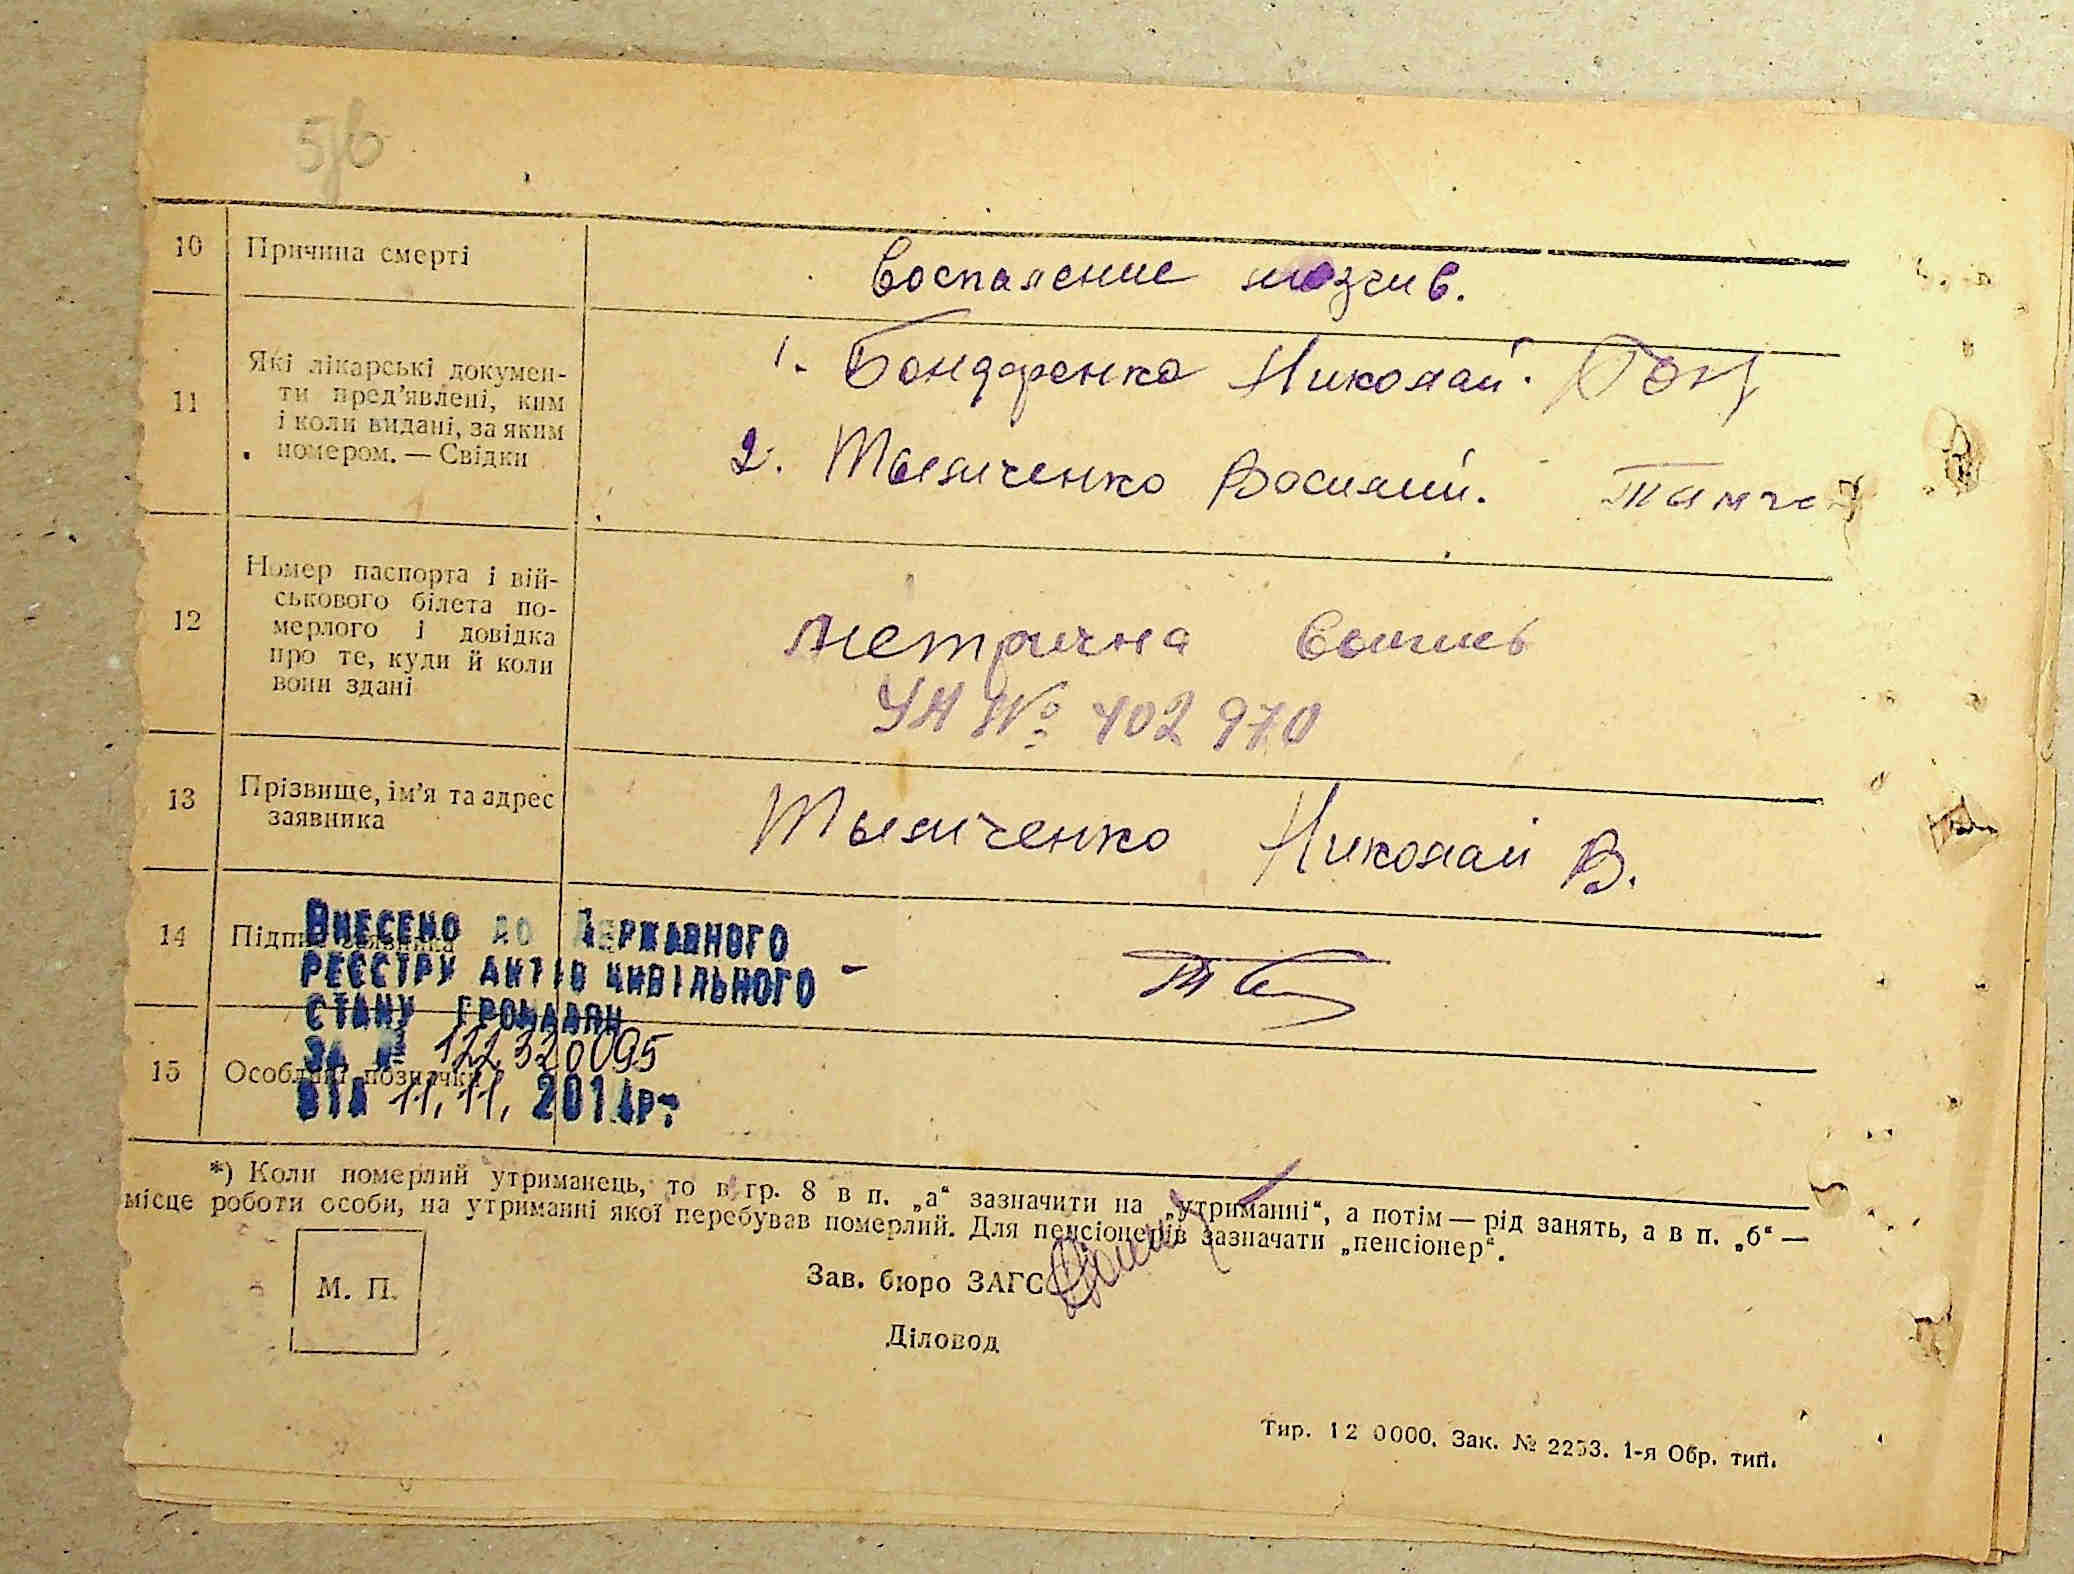 5/6
10 Причина смерті
Воспаление мозгив.
11 Які лікарські докумен-
ти пред'явлені, ким
і коли видані, за яким
номером. — Свідки
1. Бондаренко Николай.
2. Тымченко Василий.
12 Номер паспорта і вій-
ськового білета по-
мерлого і довідка
про те, куди й коли
вони здані
метрична
УН № 402970
13 Прізвище, ім'я та адрес
заявника
Тымченко Николай В.
14 Підпис заявника
15 Особливі позначки
ВНЕСЕНО ДО ДЕРЖАВНОГО
РЕЄСТРУ АКТІВ ЦИВІЛЬНОГО
СТАНУ ГРОМАДЯН
ЗА № 122320095
ВІД 11.11. 2014р.
*) Коли померлий утриманець, то в гр. 8 в п. „а“ зазначити на „утриманні“, а потім — рід занять, а в п. „б“ —
місце роботи особи, на утриманні якої перебував померлий. Для пенсіонерів зазначати „пенсіонер“.
М. П.
Зав. бюро ЗАГС
Діловод
Тир. 12 0000. Зак. № 2253. 1-я Обр. тип.